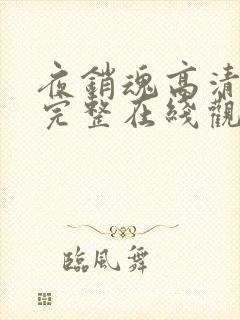 夜銷魂高清
完整在綫觀
臨風舞